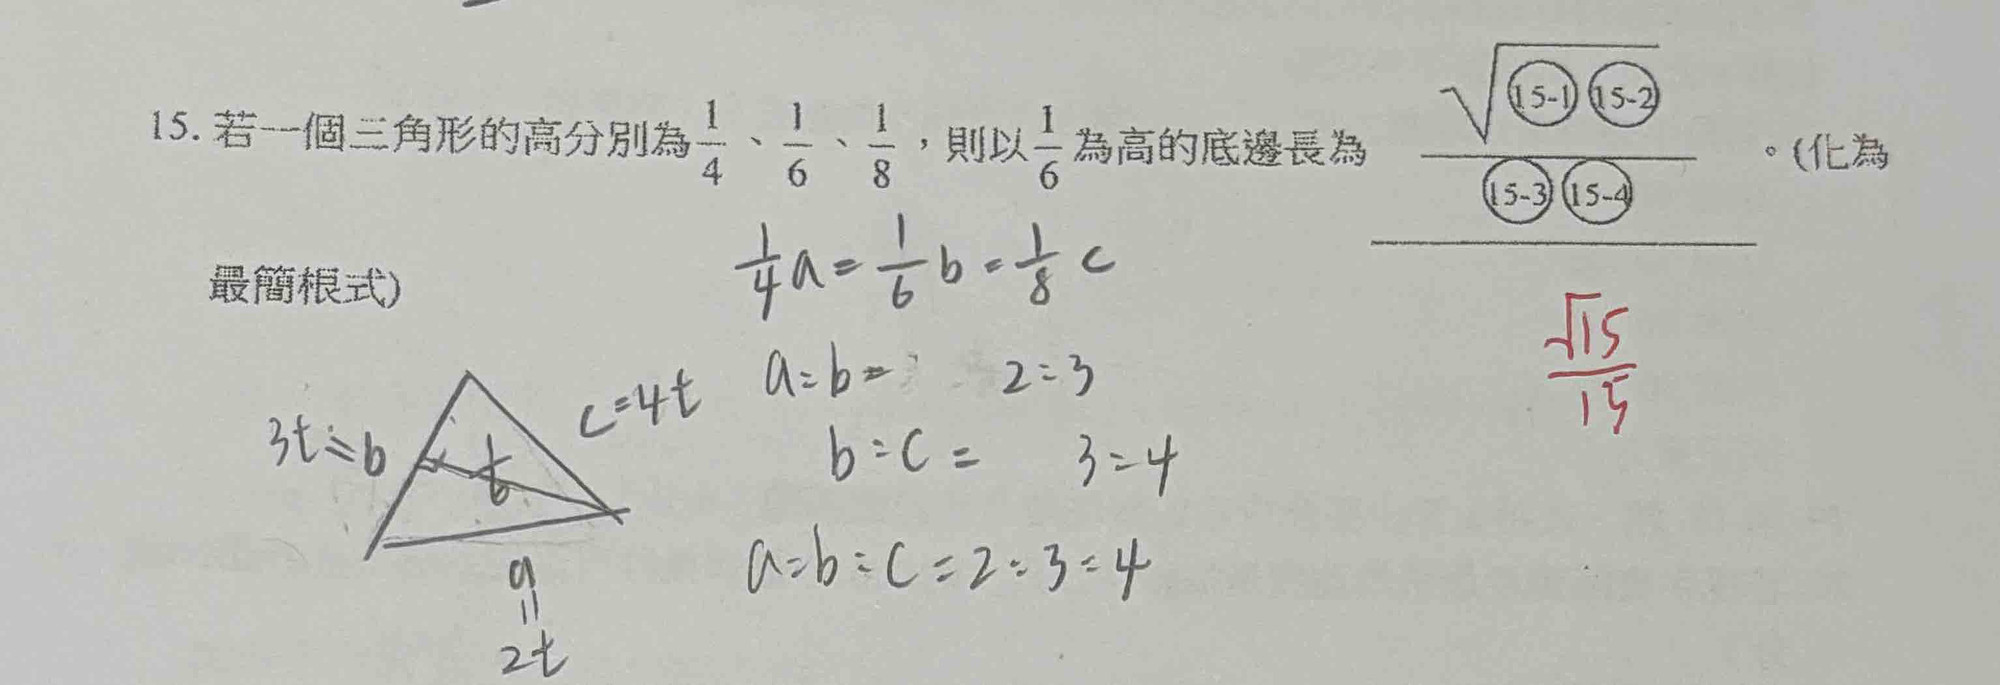 15. 若一個三角形的高分別為 1/4 、 1/6 、 1/8 ，則以 1/6 為高的底邊長為 √(15-1)(15-2) / (15-3)(15-4) 。(化為
最簡根式)
1/4 a = 1/6 b = 1/8 c
√15 / 15
a : b = 2 : 3
c = 4t
3t = b
b : c = 3 : 4
a : b : c = 2 : 3 : 4
a
=
2t